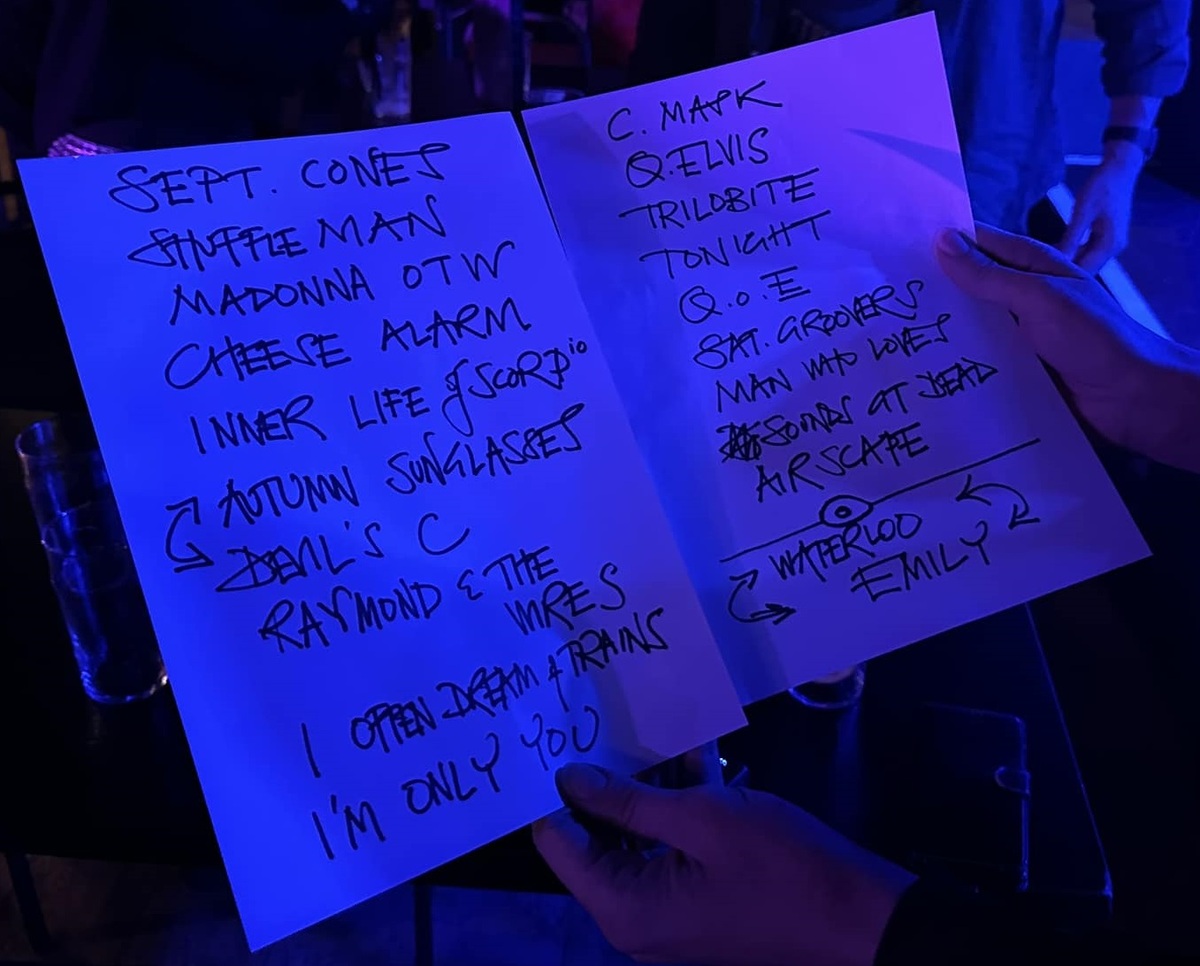 SEPT. CONES
SHUFFLE MAN
MADONNA OTW
CHEESE ALARM
INNER LIFE of SCORPio
AUTUMN SUNGLASSES
DEVIL'S C
RAYMOND & THE
WIRES
I OFTEN DREAM of TRAINS
I'M ONLY YOU
C. MAPK
Q.ELVIS
TRILOBITE
TONIGHT
Q.o.E
SAT. GROOVERS
MAN WHO LOVES
SOUNDS GT DEAD
AIRSCAPE
WATERLOO
EMILY